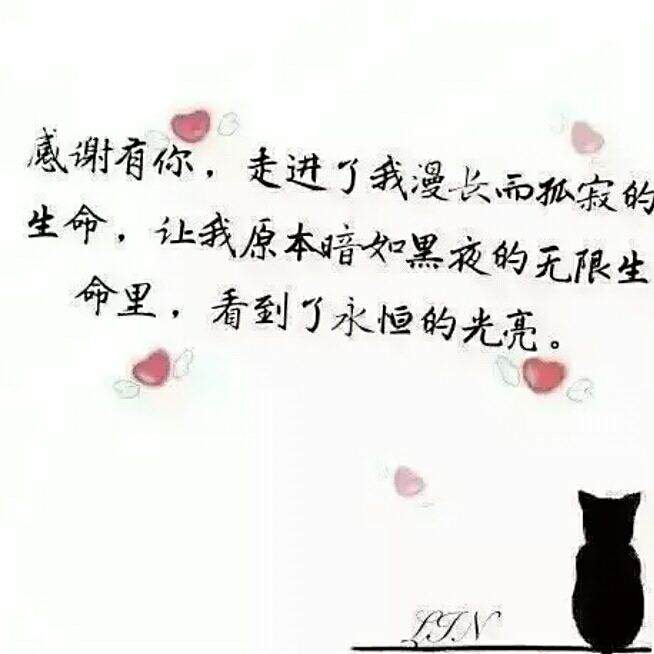 感谢有你，走进了我漫长而孤寂的
生命，让我原本暗如黑夜的无限生
命里，看到了永恒的光亮。
LIN